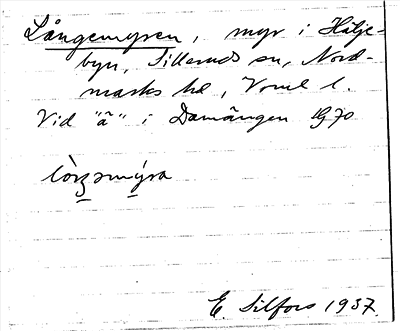 Långemyren, myr i Hälje-
byn, Silleruds sn, Nord-
marks hd, Vrml l.
Vid "ä" i Damängen 1970
E. Silfors 1937.